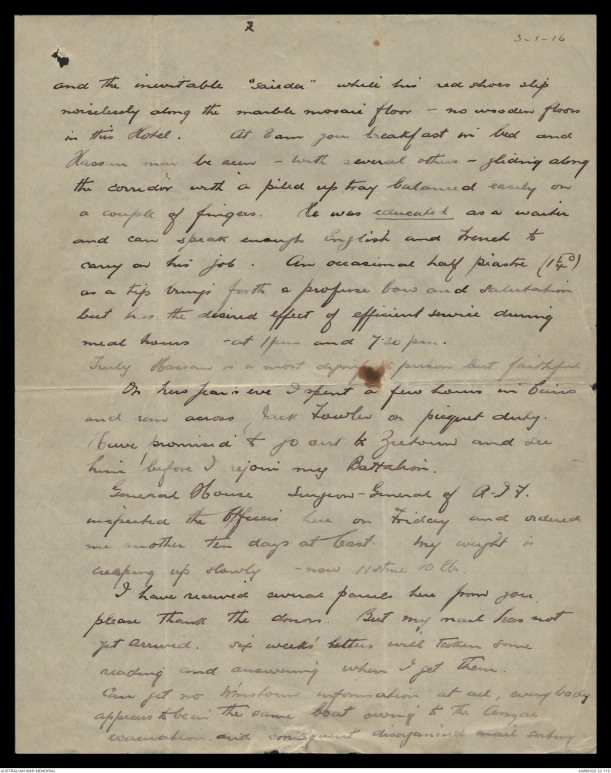 2
3-1-16
and the inevitable "saieda" while his red shoes slip
noiselessly along the marble mosaic floor - no wooden floors
in this Hotel. At 8 am you breakfast in bed and
Hassan may be seen - with several others - gliding along
the corridor with a piled up tray balanced easily on
a couple of fingers. He was educated as a waiter
and can speak enough English and French to
carry on his job. An occasional half piastre (1¼d)
as a tip brings forth a profuse bow and salutation
but has the desired effect of efficient service during
meal hours - at 1 pm and 7.30 pm.
Truly Hassan is a most person but faithful.
On New Year's eve I spent a few hours in Cairo
and ran across Jack Fowler on picquet duty.
Have promised to go out to Zeitoun and see
him before I rejoin my Battalion.
General House Surgeon-General of A.I.F.
inspected the Officers here on Friday and ordered
me another ten days at least. My weight is
creeping up slowly - now 11 stone 10 lb.
I have received several parcels here from you
please thank the donors. But my mail has not
yet arrived. Six weeks' letters will taken some
reading and answering when I get them.
Can get no information at all, everybody
appears to be in the same boat owing to the Anzac
evacuation and consequent disorganised mail sorting
AUSTRALIAN WAR MEMORIAL